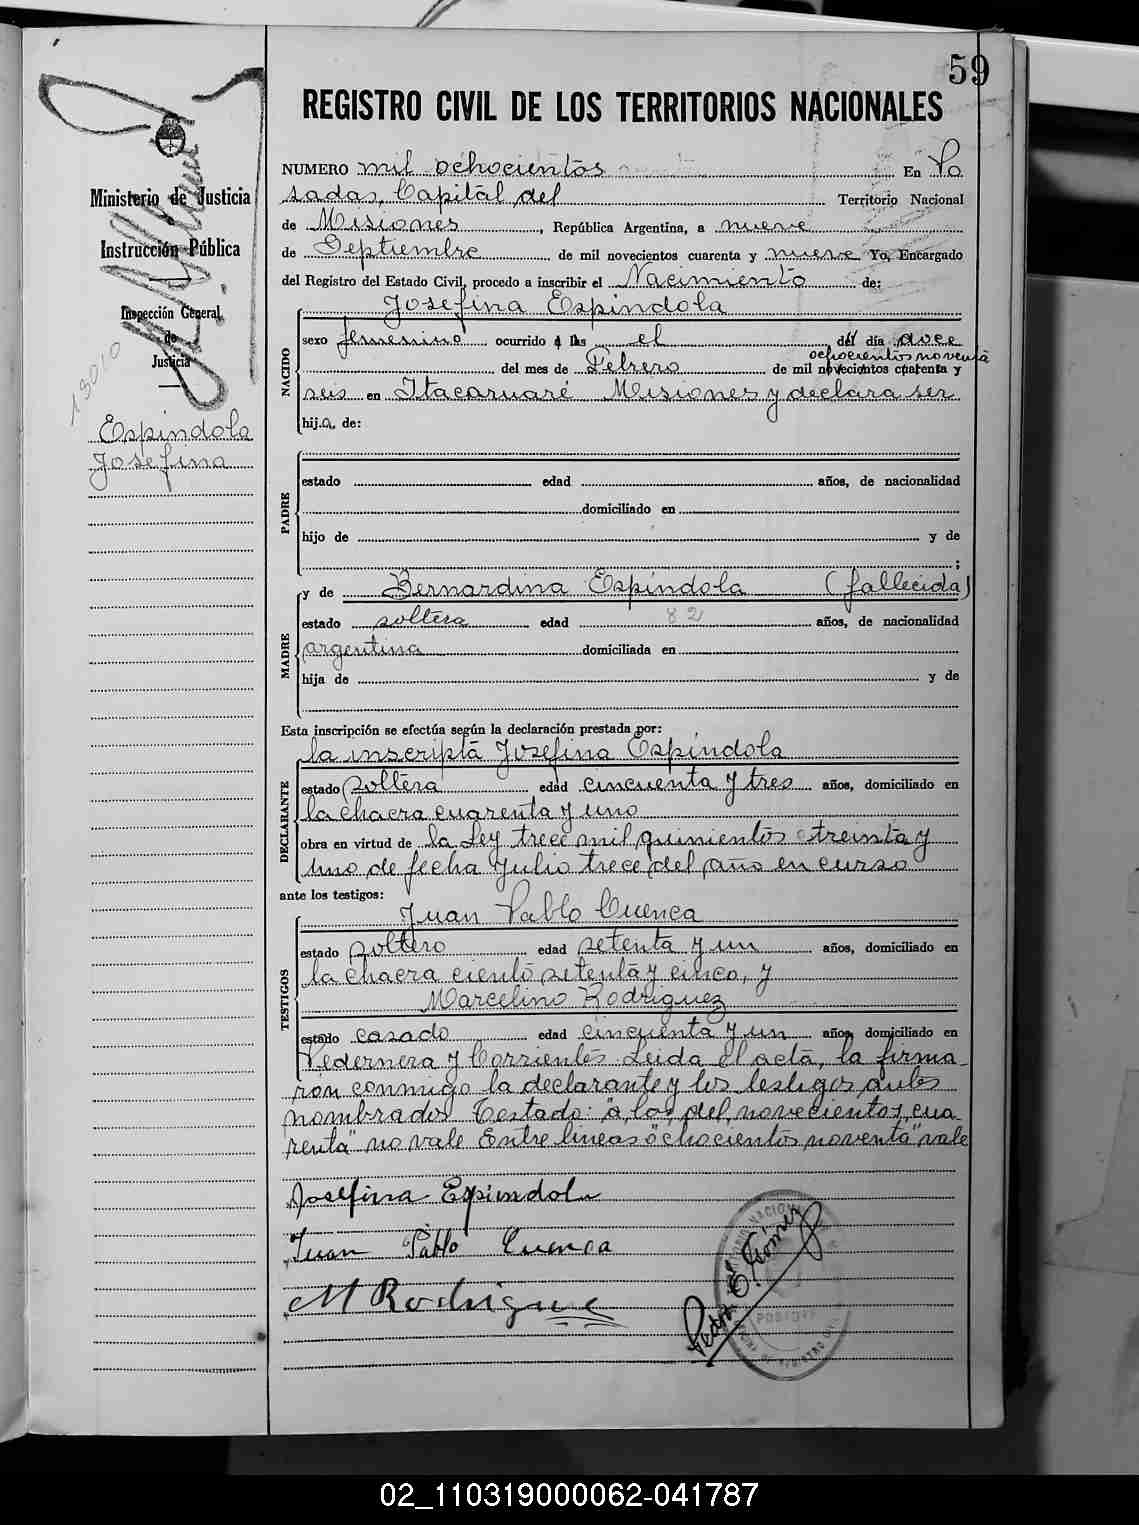 59
REGISTRO CIVIL DE LOS TERRITORIOS NACIONALES
Ministerio de Justicia
e
Instrucción Pública
Inspección General
de
Justicia
Espíndola
Josefina
NUMERO mil ochocientos En Po
sadas, Capital del Territorio Nacional
de Misiones, República Argentina, a nueve
de Septiembre de mil novecientos cuarenta y nueve Yo, Encargado
del Registro del Estado Civil, procedo a inscribir el Nacimiento de:
Josefina Espíndola
NACIDO
sexo femenino ocurrido á las el del día doce
ochocientos noventa
del mes de Febrero de mil novecientos cuarenta y
seis en Itacaruaré Misiones y declara ser
hij.a. de:
PADRE
estado edad años, de nacionalidad
domiciliado en
hijo de y de
;
y de Bernardina Espíndola (fallecida)
MADRE
estado soltera edad 82 años, de nacionalidad
argentina domiciliada en
hija de y de
Esta inscripción se efectúa según la declaración prestada por:
la inscripta Josefina Espíndola
DECLARANTE
estado soltera edad cincuenta y tres años, domiciliado en
la chacra cuarenta y uno
obra en virtud de la Ley trece mil quinientos treinta y
uno de fecha Julio trece del año en curso
ante los testigos:
Juan Pablo Cuenca
TESTIGOS
estado soltero edad setenta y un años, domiciliado en
la chacra ciento setenta y cinco, y
Marcelino Rodriguez
estado casado edad cincuenta y un años, domiciliado en
Pedernera y Corrientes. Leida el acta, la firma
ron conmigo la declarante y los testigos antes
nombrados. Testado: "a las, del, novecientos, cua
renta" no vale Entre lineas "ochocientos noventa" vale
Josefina Espindola
Juan Pablo Cuenca
M Rodrigue
Pedro E. Gómez
POSADAS
02_110319000062-041787